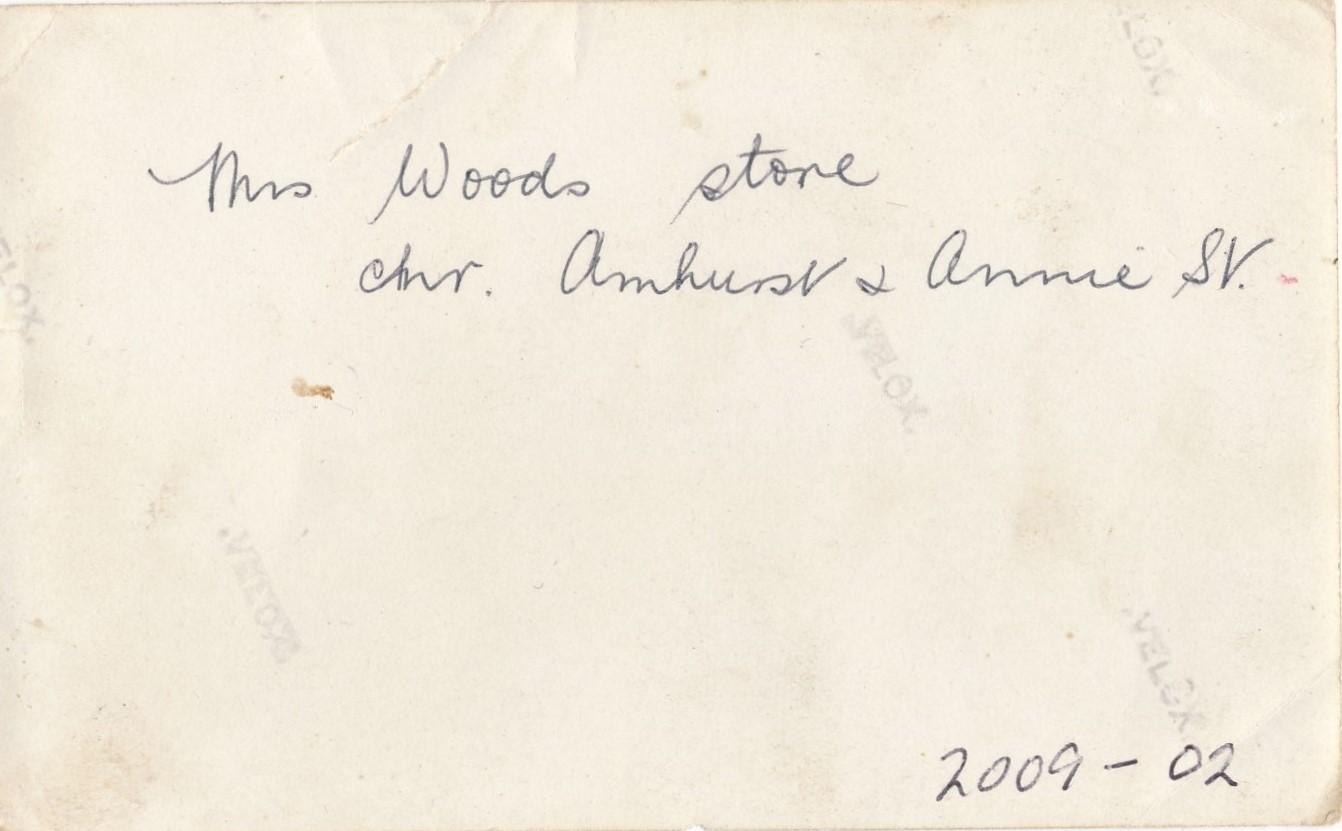 Mrs Woods store
chr. Amhurst & Annie St.
VELOX.
VELOX.
VELOX.
VELOX.
VELOX.
2009-02